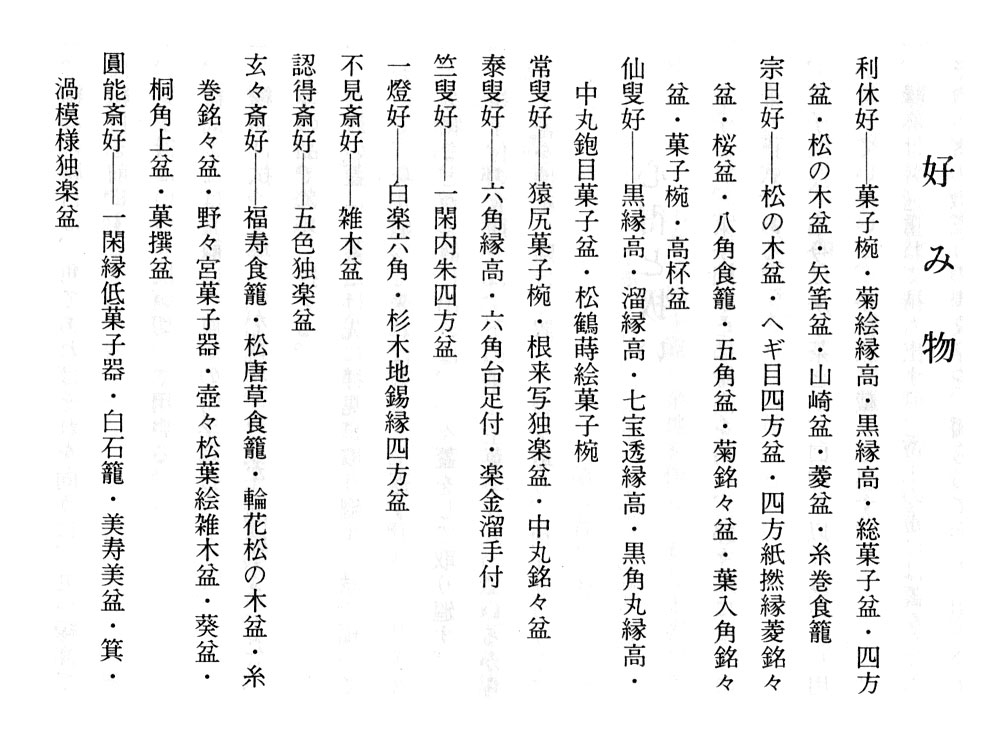 好み物
利休好――菓子椀・菊絵縁高・黒縁高・総菓子盆・四方
盆・松の木盆・矢筈盆・山崎盆・菱盆・糸巻食籠
宗旦好――松の木盆・ヘギ目四方盆・四方紙撚縁菱銘々
盆・桜盆・八角食籠・五角盆・菊銘々盆・葉入角銘々
盆・菓子椀・高杯盆
仙叟好――黒縁高・溜縁高・七宝透縁高・黒角丸縁高・
中丸鉋目菓子盆・松鶴蒔絵菓子椀
常叟好　猿尻菓子椀・根来写独楽盆・中丸銘々盆
泰叟好――六角縁高・六角台足付・楽金溜手付
竺叟好――一閑内朱四方盆
一燈好――白楽六角・杉木地錫縁四方盆
不見斎好――雑木盆
認得斎好――五色独楽盆
玄々斎好――福寿食籠・松唐草食籠・輪花松の木盆・糸
巻銘々盆・野々宮菓子器・壺々松葉絵雑木盆・葵盆・
桐角上盆・菓撰盆
圓能斎好――一閑縁低菓子器・白石籠・美寿美盆・箕・
渦模様独楽盆